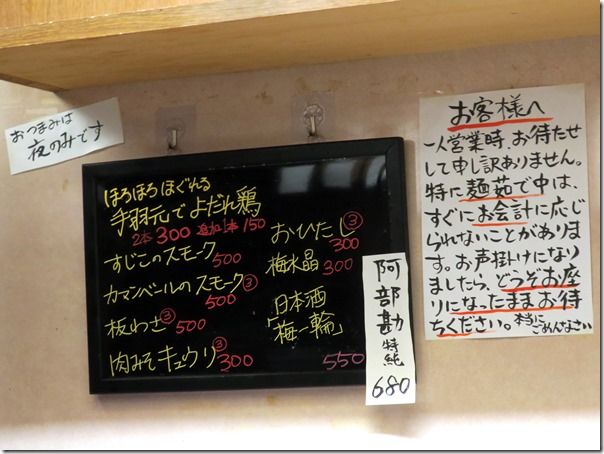 おつまみは
夜のみです
ほろほろほぐれる
手羽元でよだれ鶏
2本300 追加1本150
すじこのスモーク
500
カマンベールのスモーク③
500
板わさ③
500
肉みそキュウリ③
300
おひたし③
300
梅水晶 300
日本酒
「梅一輪」
550
阿部勘 特純
680
お客様へ
一人営業時、お待たせ
して申し訳ありません。
特に麺茹で中は、
すぐにお会計に応じ
られないことがありま
す。お声掛けになり
ましたら、どうぞお座
りになったままお待
ちください。本当に
ごめんなさい